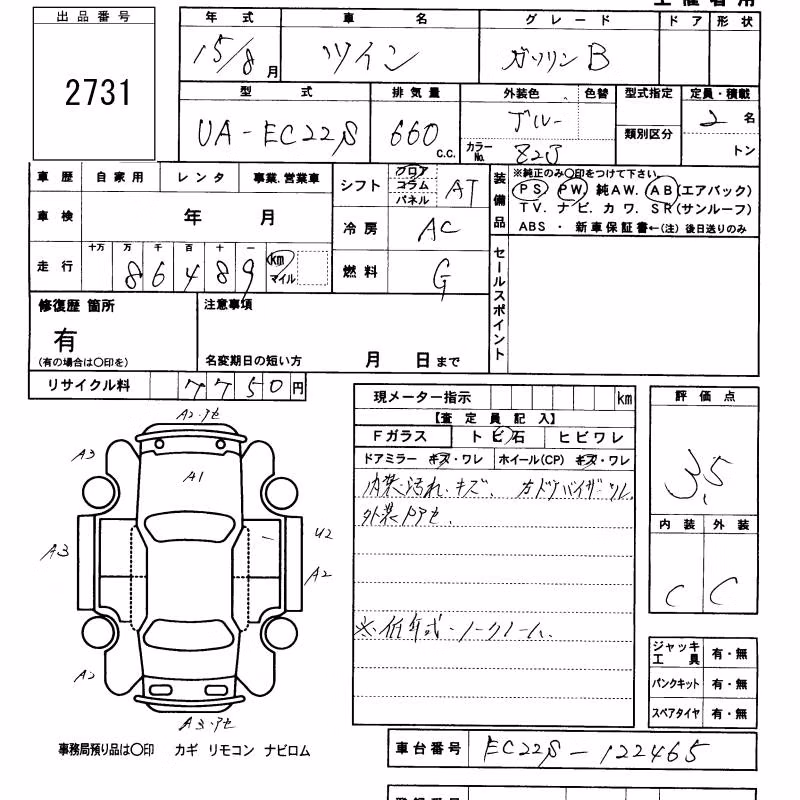 出品番号
2731
年式 車名 グレード ドア 形状
15/8月 ツイン ガソリンB
型式 排気量 外装色 色替 型式指定 定員・積載
UA-EC22S 660 c.c. ブルー 2名
カラーNo. Z2J 類別区分 トン
車歴 自家用 レンタ 事業.営業車
車検 年 月
走行 十万 万 千 百 十 一
86489 km マイル
シフト フロア コラム パネル AT
冷房 AC
燃料 G
装備品
※純正のみ○印をつけて下さい。
PS PW 純AW. AB(エアバック)
TV. ナビ. カワ. SR(サンルーフ)
ABS ・ 新車保証書←(注) 後日送りのみ
セールスポイント
修復歴 箇所
有
(有の場合は○印を)
注意事項
名変期日の短い方 月 日まで
リサイクル料 7750円
現メーター指示 km
【査定員記入】
Fガラス トビ石 ヒビワレ
ドアミラー キズ・ワレ ホイール(CP) キズ・ワレ
内装汚れ・キズ、 右ドアバイザーワレ
外装アセ.
※低年式・ノークレーム.
評価点
3.5
内装 外装
C C
ジャッキ工具 有・無
パンクキット 有・無
スペアタイヤ 有・無
A2・アセ
A3
A1
A3
U2
A2
A2
A3・アセ
事務局預り品は○印 カギ リモコン ナビロム
車台番号 EC22S-122465